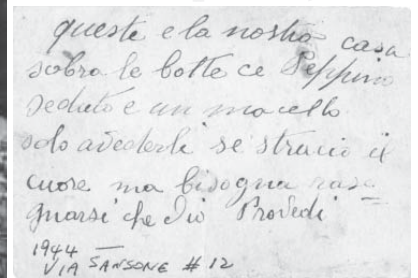 queste e la nostra casa
sobra le botte ce Peppino
seduto e un macello
solo avederli se stracio il
cuore ma bisogna rase=
gnarsi che Dio Provedi
1944 —
VIA SANSONE # 12